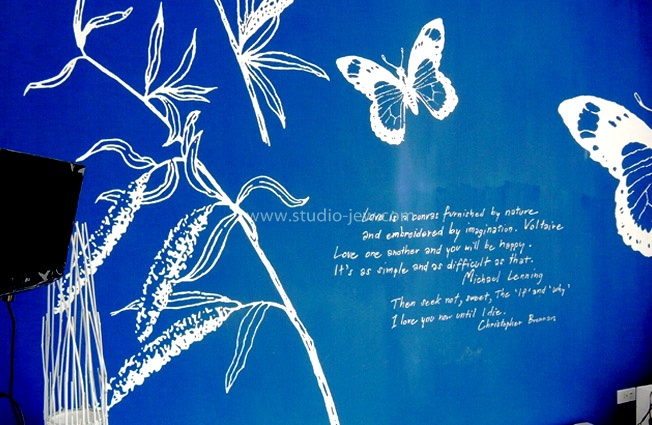 www.studio-je
Love is a canvas furnished by nature
and embroidered by imagination. Voltaire
Love one another and you will be happy.
It's as simple and as difficult as that.
Michael Lenning
Then seek not, sweet, The 'If' and 'why'
I love you now until I die.
Christopher Brennan